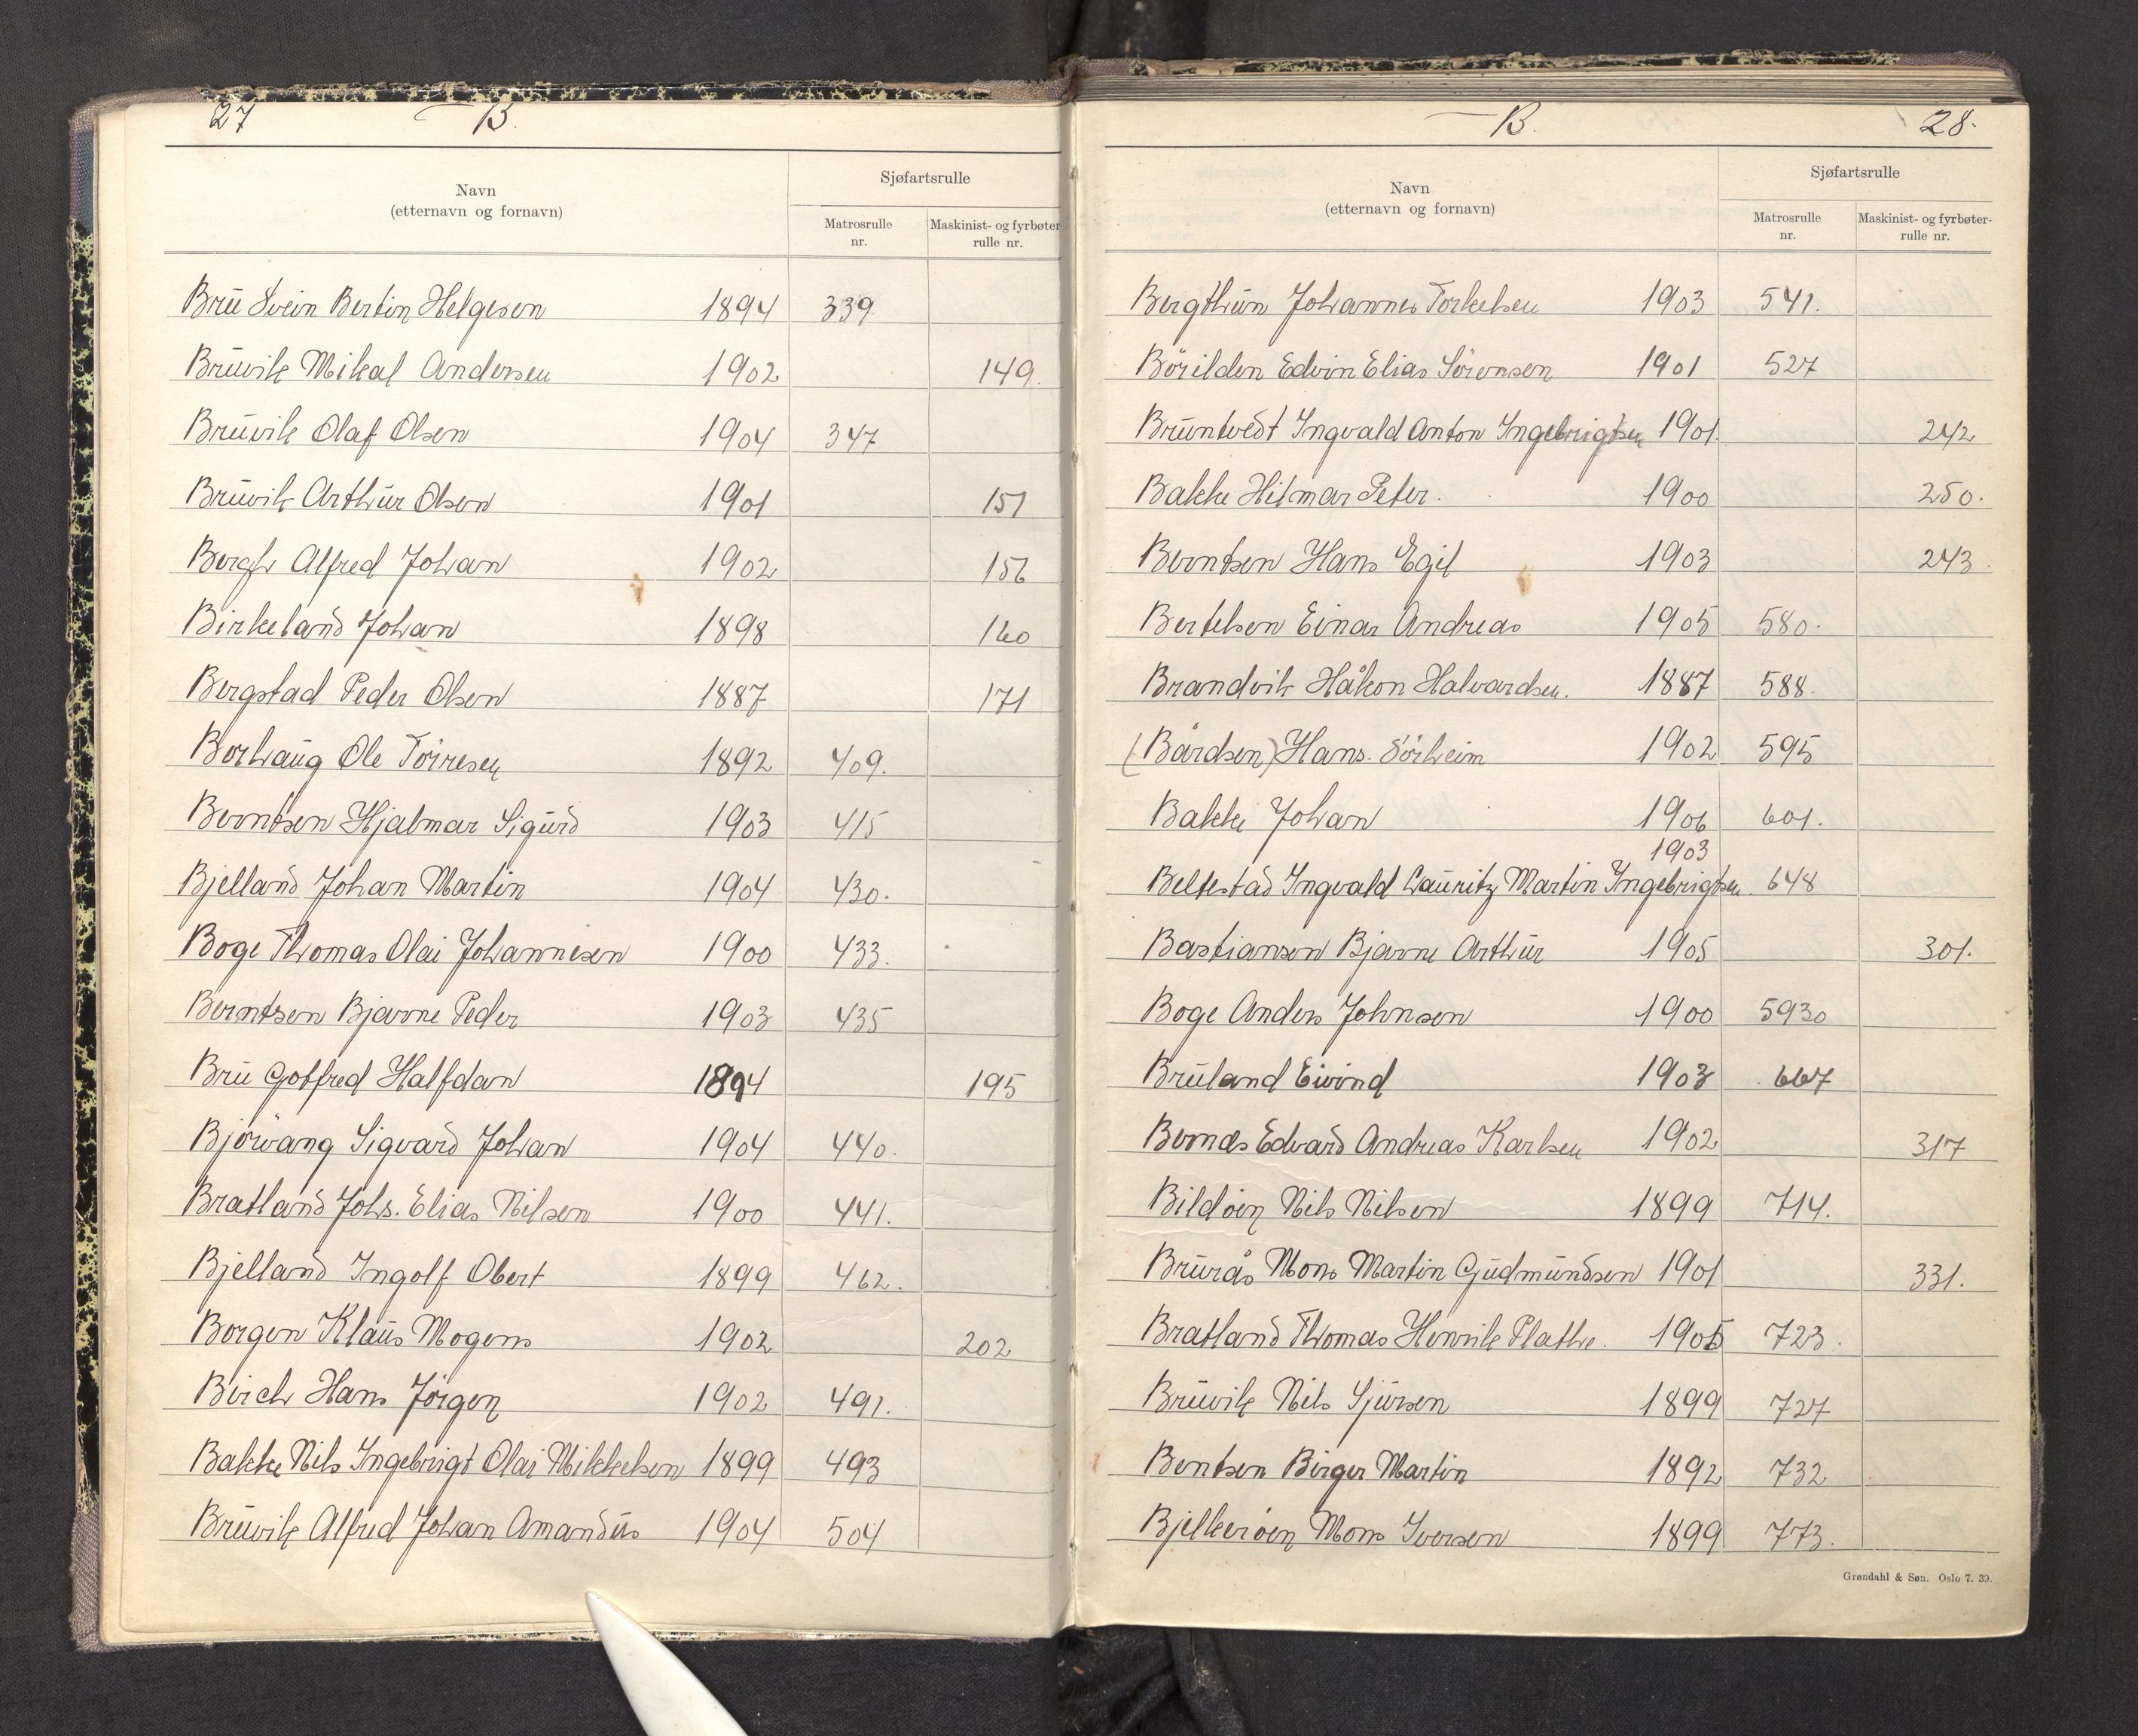 27 B.
Navn
(etternavn og fornavn)
Sjøfartsrulle
Matrosrulle nr.
Maskinist- og fyrbøter-rulle nr.
Brü Svein Bertin Helgesen 1894 339.
Brüvik Mikal Andersen 1902 149.
Brüvik Olaf Olsen 1904 347
Brüvik Arthür Olsen 1901 151
Bergh Alfred Johan 1902 156
Birkeland Johan 1898 160
Bergstad Peder Olsen 1887 171
Borhaüg Ole Törresen 1892 409.
Berntsen Hjalmar Sigürd 1903 415
Bjelland Johan Martin 1904 430.
Boge Thomas Olai Johannesen 1900 433.
Berntsen Bjarne Peder 1903 435
Brü Gotfred Halfdan 1894 195
Björvang Sigvard Johan 1904 440.
Bratland Johs. Elias Nilsen 1900 441.
Bjelland Ingolf Obert 1899 462.
Borgen Klaüs Mogens 1902 202
Birch Hans Jörgen 1902 491.
Bakke Nils Ingebrigt Olai Mikkelsen 1899 493
Brüvik Alfred Johan Amandüs 1904 504
B. 28.
Navn
(etternavn og fornavn)
Sjøfartsrulle
Matrosrulle nr.
Maskinist- og fyrbøter-rulle nr.
Bergthün Johannes Torkelsen 1903 541.
Börilden Edvin Elias Sörensen 1901 527
Brüntvedt Ingvald Anton Ingebrigtsen 1901. 242
Bakke Hilmar Peter. 1900 250.
Berntsen Hans Egil 1903 243.
Bertelsen Einar Andreas 1905 580.
Brandvik Håkon Halvardsen. 1887 588.
(Bårdsen) Hans. Sörheim 1902 595
Bakke Johan 1906 601.
1903
Beltestad Ingvald Lauritz Martin Ingebrigtsen. 648
Bastiansen Bjarne Arthür 1905 301.
Boge Anders Johnsen 1900 5930
Brüland Eivind 1903 667
Bernås Edvard Andreas Karlsen 1902 317
Bildöen Nils Nilsen 1899 714.
Brürås Mons Martin Güdmündsen 1901 331.
Bratland Thomas Henrik Plathe. 1905 723.
Brüvik Nils Sjürsen 1899 727
Bentsen Birger Martin 1892 732
Bjelkeröen Mons Iversen 1899 773.
Grøndahl & Søn. Oslo 7. 39.